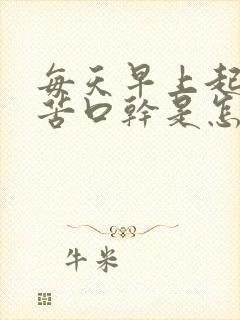 每天早上起
苦口幹是怎
牛米